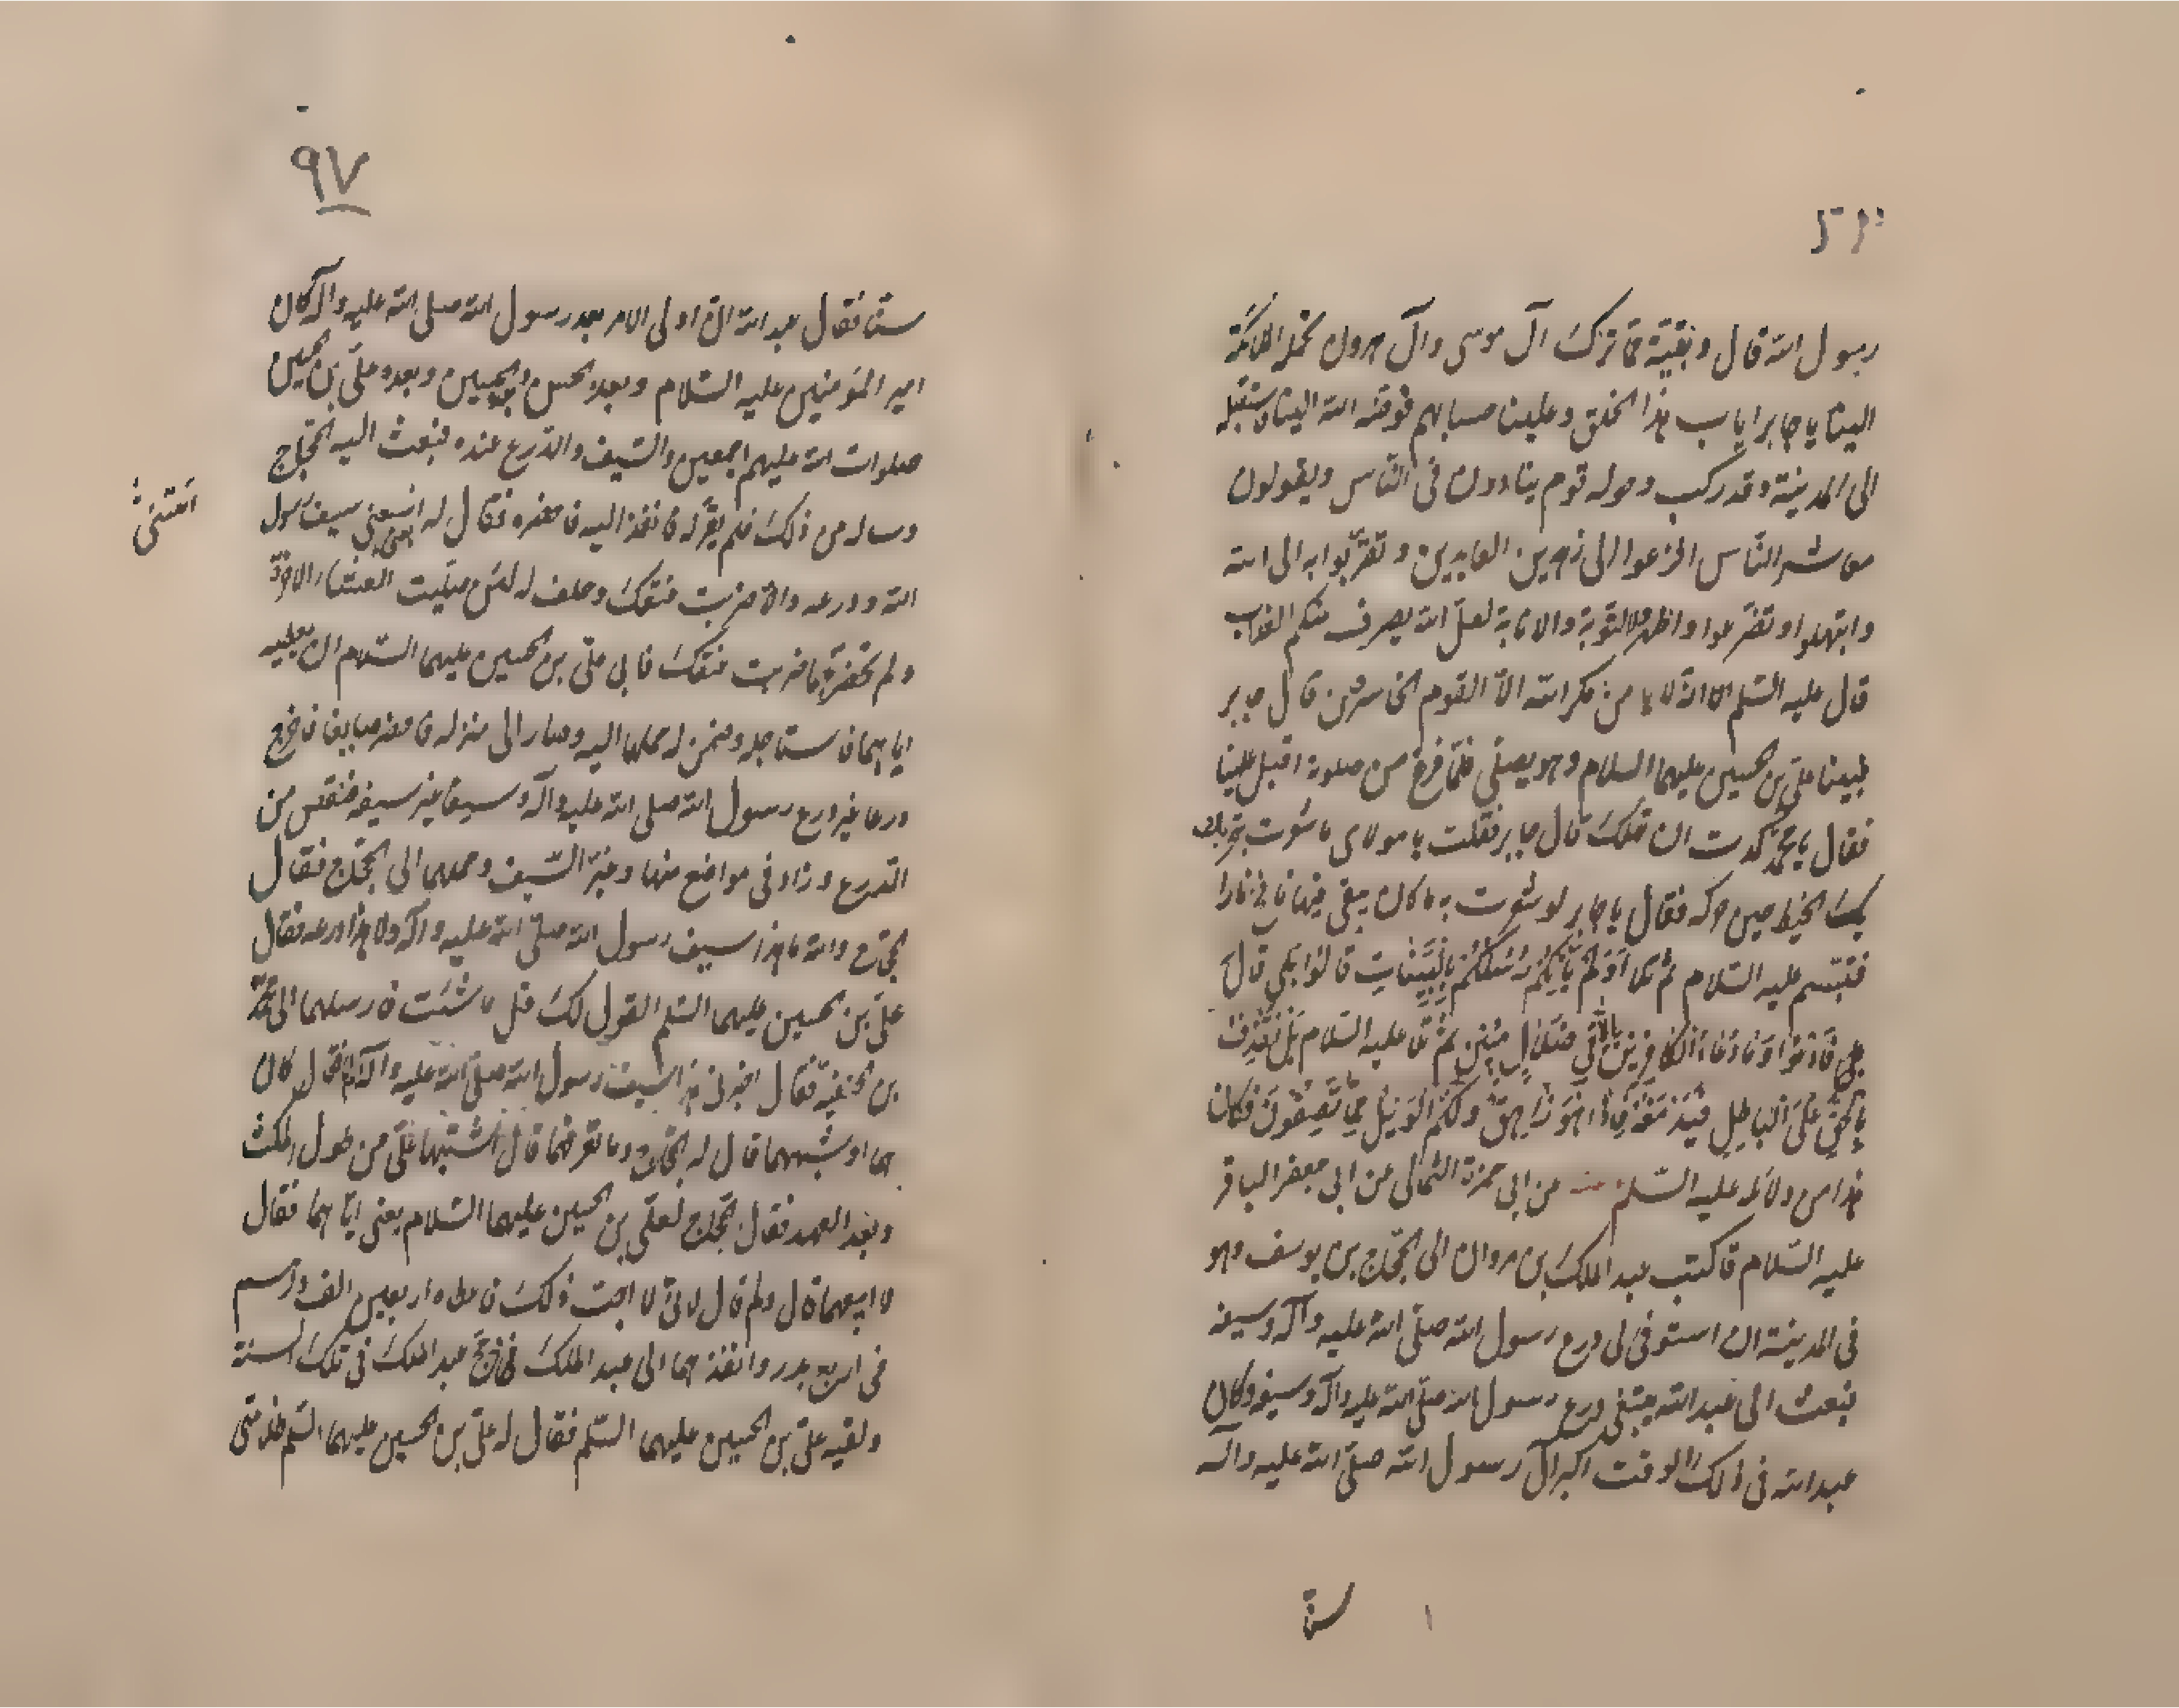 رسول الله قال و بقيّة ممّا ترك آل موسى وآل هرون تحمله الملائكة
الينا يا جابر اياب هذا الخلق وعلينا حسابهم فوحقه الله الينا
الى المدينة وقد ركب وحوله قوم ينادون فى النّاس ويقولون
معاشر النّاس افزعوا الى زين العابدين وتقرّبوا به الى الله
وابتهلوا وتضرّعوا واظهروا التوبة والانابة لعلّ الله يصرف عنكم العذاب
قال عليه السّلم الا انّه لا يامن مكر الله الّا القوم الخاسرون قال جابر
علىّ بن الحسين عليهما السلام وهو يصلّي فلمّا فرغ من صلوته اقبل علينا
فقال يا محمّد كدت ان تهلك قال جابر فقلت يا مولاى ما شعرت بتحريك
يدك الخيط حين حركه فقال يا جابر لو شعرت به ما كان يبقى فيها نافخ نارا
فتبسّم عليه السّلام ثم تلا اَوَلَم تأتيكم رسلكم بالبيّنات قالوا بلى قال
فادعوا وما دعاء الكافرين الّا في ضلال مبين ثم تلا عليه السّلام بل نقذف
بالحقّ على الباطل فيدمغه فاذا هو زاهق ولكم الويل ممّا تصفون فكان
هذا من دلائله عليه السّلم عن ابى حمزة الثمالى عن ابى جعفر الباقر
عليه السّلام قال كتب عبد الملك بن مروان الى الحجّاج بن يوسف وهو
فى المدينة ان استوفى لى درع رسول الله صلّى الله عليه وآله وسيفه
فبعث الى عبد الله يبتغى درع رسول الله صلّى الله عليه وآله وسيفه وكان
عبد الله فى ذلك الوقت اكبر آل رسول الله صلّى الله عليه وآله
سنّا
٩٧
سنّا فقال عبد الله انّ اولى الامر بعد رسول الله صلى الله عليه وآله كان
امير المؤمنين عليه السّلام وبعده الحسن والحسين وبعده علىّ بن الحسين
صلوات الله عليهم اجمعين والسّيف والدّرع عنده فبعث اليه الحجّاج
وساله من ذلك فلم يقرّ له فانفذ اليه فاحضره فقال له سيف رسول
الله ودرعه والّا ضربت عنقك وحلف له لئن صلّيت العشاء الاخرة
ولم تحضره ما ضربت عنقك فابى علىّ بن الحسين عليهما السّلام ان يعطيه
ايّاهما فاستاجله وضمن له حملها اليه وصار الى منزله فاحضر صايغا فاخرج
درعا غير درع رسول الله صلى الله عليه وآله وسيفا غير سيفه فنقص من
الدرع وزاد فى مواضع منها وغيّر السّيف وحملهما الى الحجّاج فقال
الحجّاج والله ما هذا سيف رسول الله صلّى الله عليه وآله ولا هذا درعه فقال
علىّ بن الحسين عليهما السّلم القول لك قل ما شئت فارسلهما الى محمّد
بن الحنفيّة فقال اخبرنى هذا سيف رسول الله صلّى الله عليه وآله ام لا فقال كان
هما او شبههما قال له الحجّاج وما تعرفهما قال اشتبها علىّ من طول المكث
وبعد العهد فقال الحجّاج لعلىّ بن الحسين عليهما السّلام بعنى ايّاهما فقال
لا ابيعهما قال ولم قال لانّى لا احبّ ذلك فاعطاه اربعين الف درهم
فى اربع بدر وانفذهما الى عبد الملك فحجّ عبد الملك فى تلك السنة
ولقيه علىّ بن الحسين عليهما السّلم فقال له علىّ بن الحسين عليهما السّلم ظلامتى